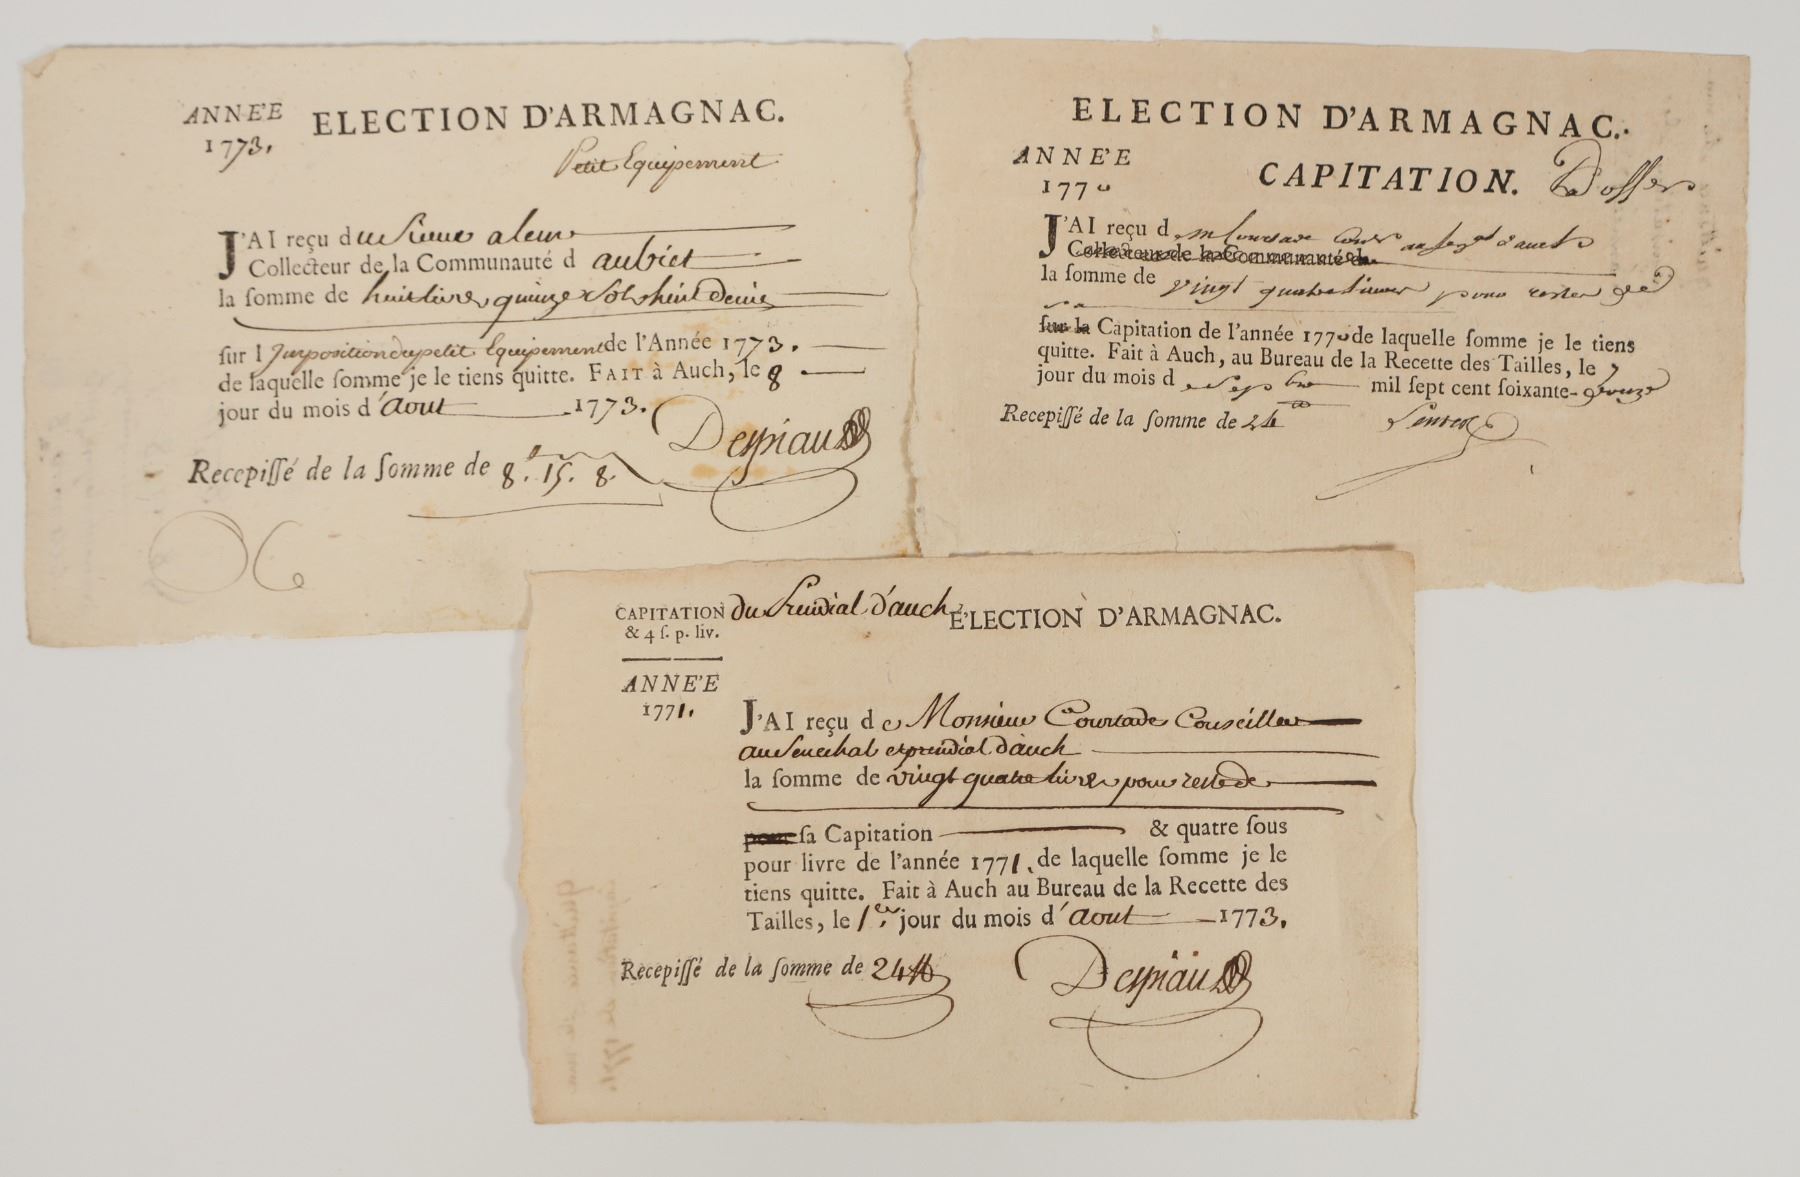 ANNE'E
1773.
ELECTION D'ARMAGNAC.
Petit Equipement
J'AI reçu du Sieur aleur
Collecteur de la Communauté d aubiet
la ſomme de huit livres quinze sols huit denie
ſur l Jmposition du petit Equipement de l'Année 1773.
de laquelle ſomme je le tiens quitte. FAIT à Auch, le 8
jour du mois d'aout 1773.
Despiau
Recepiſſé de la ſomme de 8. 15. 8.
ELECTION D'ARMAGNAC.
ANNE'E
1770
CAPITATION.
J'AI reçu d m Courtade
Collecteur de la Communauté d
la ſomme de vingt quatre livres pour reste de
sa
ſur la Capitation de l'année 1770 de laquelle ſomme je le tiens
quitte. Fait à Auch, au Bureau de la Recette des Tailles, le 7
jour du mois d e Sep bre mil ſept cent ſoixante-
Recepiſſé de la ſomme de 24
CAPITATION du Presidial d'auch ÉLECTION D'ARMAGNAC.
& 4 ſ. p. liv.
ANNE'E
1771.
J'AI reçu d e Monsieur Courtade Conseiller
au Senechal et presidial d'auch
la ſomme de vingt quatre livres pour reste de
pour ſa Capitation & quatre ſous
pour livre de l'année 1771. de laquelle ſomme je le
tiens quitte. Fait à Auch au Bureau de la Recette des
Tailles, le 1er. jour du mois d'aout 1773.
Recepiſſé de la ſomme de 24 ₶
Despiau